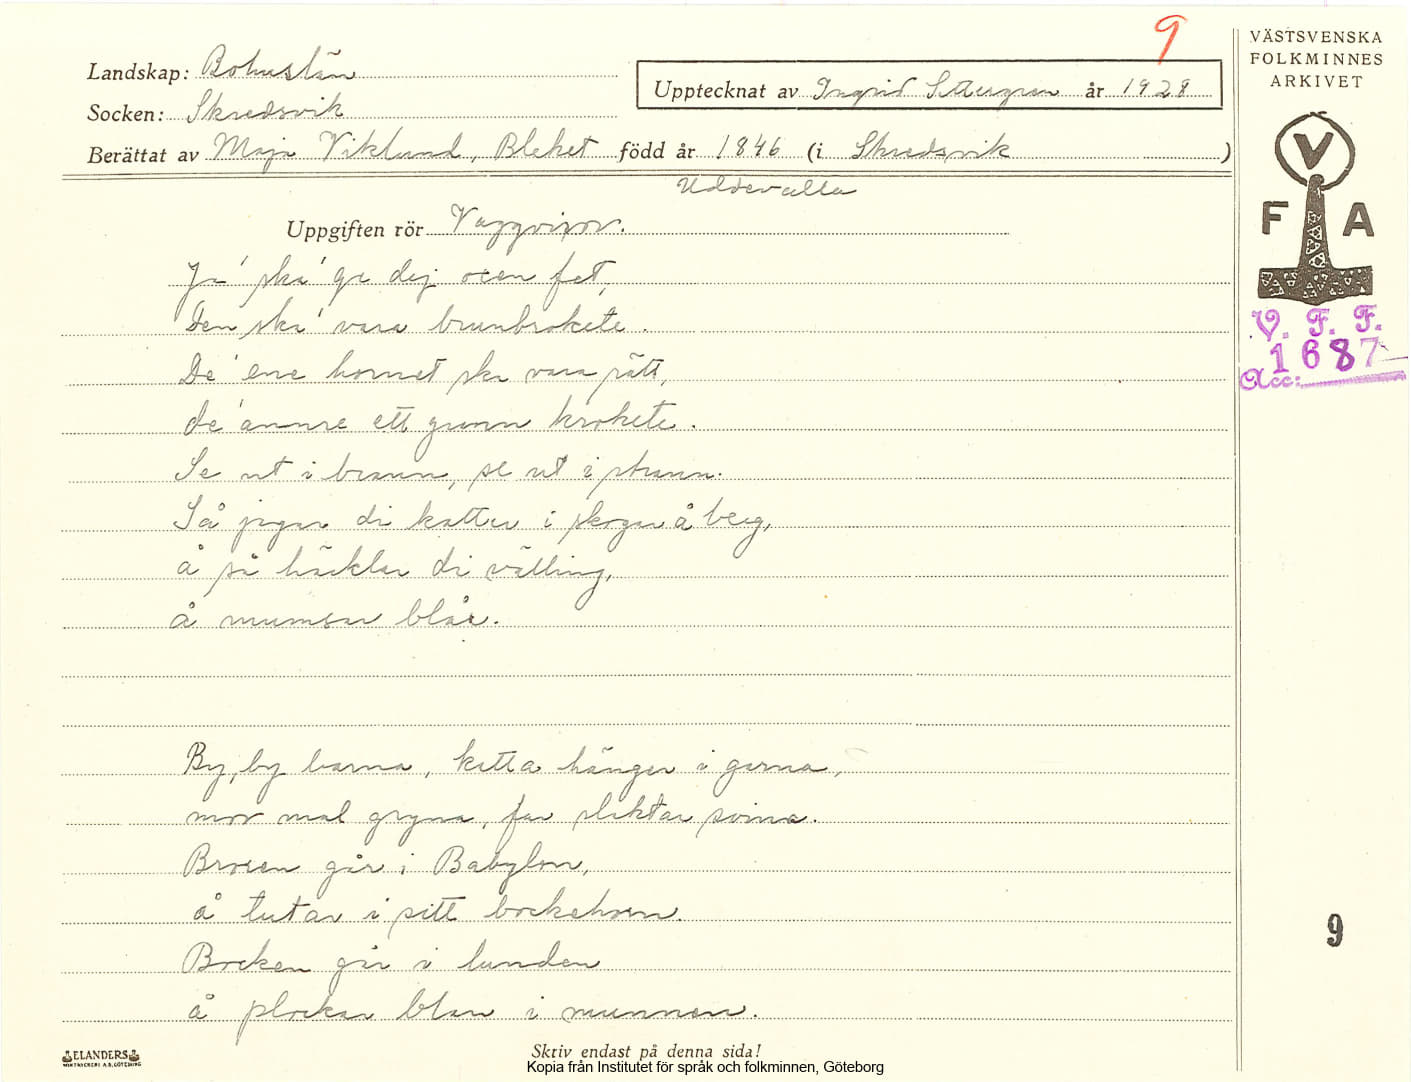 9
VÄSTSVENSKA
FOLKMINNES
ARKIVET
Landskap: Bohuslän
Upptecknat av Ingrid år 1928
Socken: Skredsvik
Berättat av Maja Viklund, Bleket född år 1846 (i Skredsvik )
Uddevalla
V
F A
Uppgiften rör Vaggvisor.
Ja' ska' ge dej ocen fet,
Den ska' vara brunbrokete.
De' ene hornet ska vara rätt,
de' annre ett grann krokete.
Se ut i brann, se ut i strann.
Så jagar di katter i skogar å berg,
å så häcklar di välling,
å mumsar blår.
V. F. F.
1687
Acc:
By, by barna, katta hänger i garna,
mor mal gryna, far slaktar svina.
Brocen går i Babylon,
å tutar i sitt bockehorn.
Bocken går i lunden
å plockar blan i munnen.
9
ELANDERS
BOKTRYCKERI A.B. GÖTEBORG
Skriv endast på denna sida!
Kopia från Institutet för språk och folkminnen, Göteborg